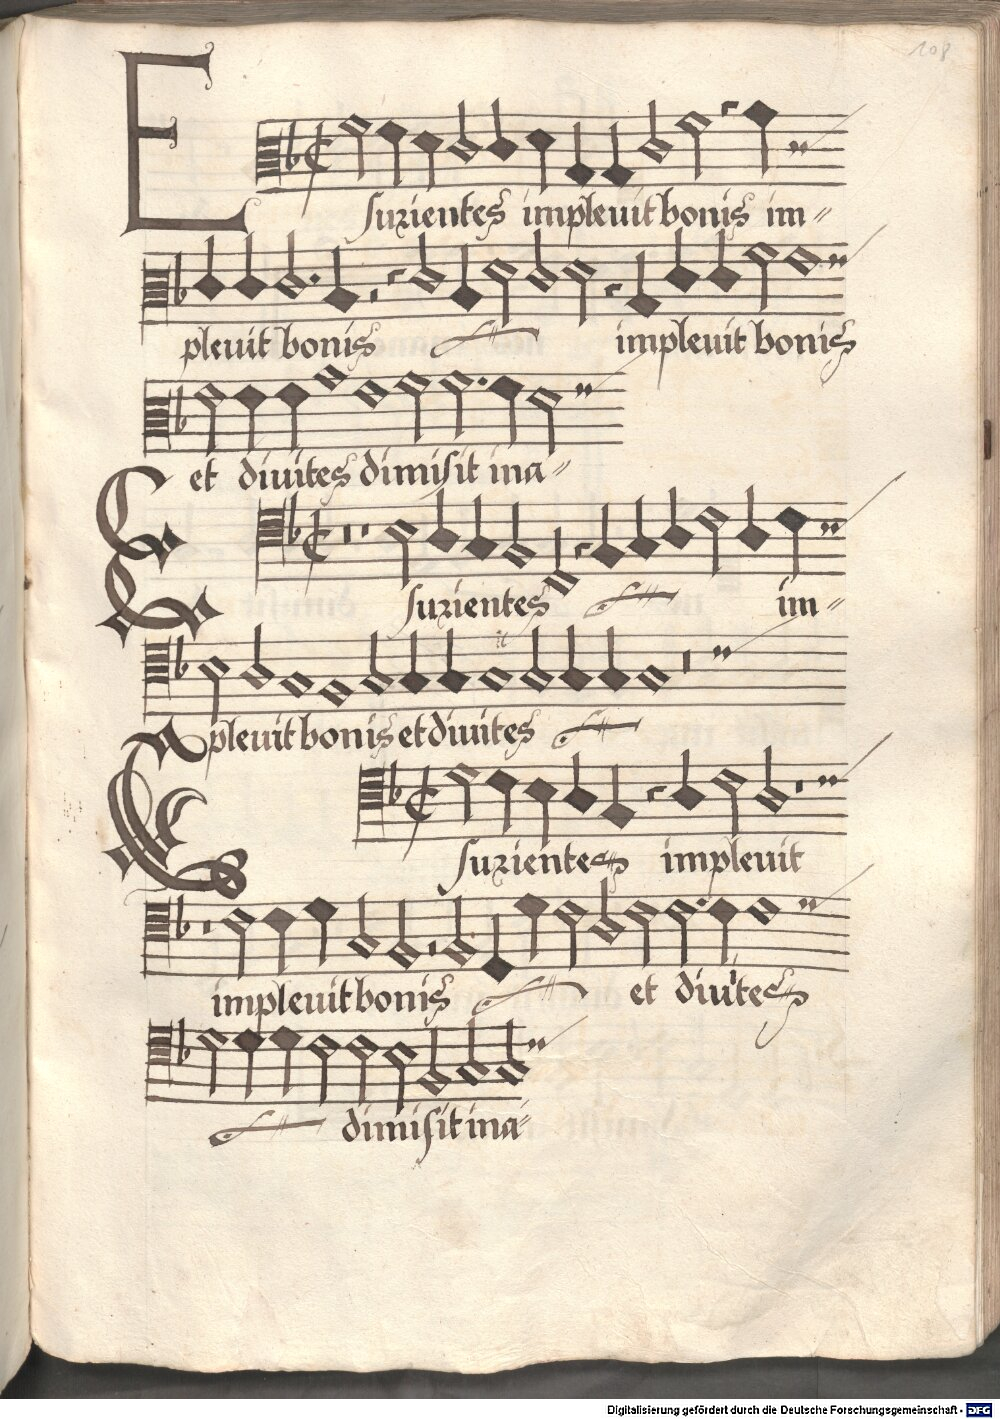 108
Esurientes impleuit bonis im=
pleuit bonis impleuit bonis
et diuites dimisit ina=
Esurientes im=
pleuit bonis et diuites
Esurientes impleuit
impleuit bonis et diuites
dimisit ina=
Digitalisierung gefördert durch die Deutsche Forschungsgemeinschaft - DFG